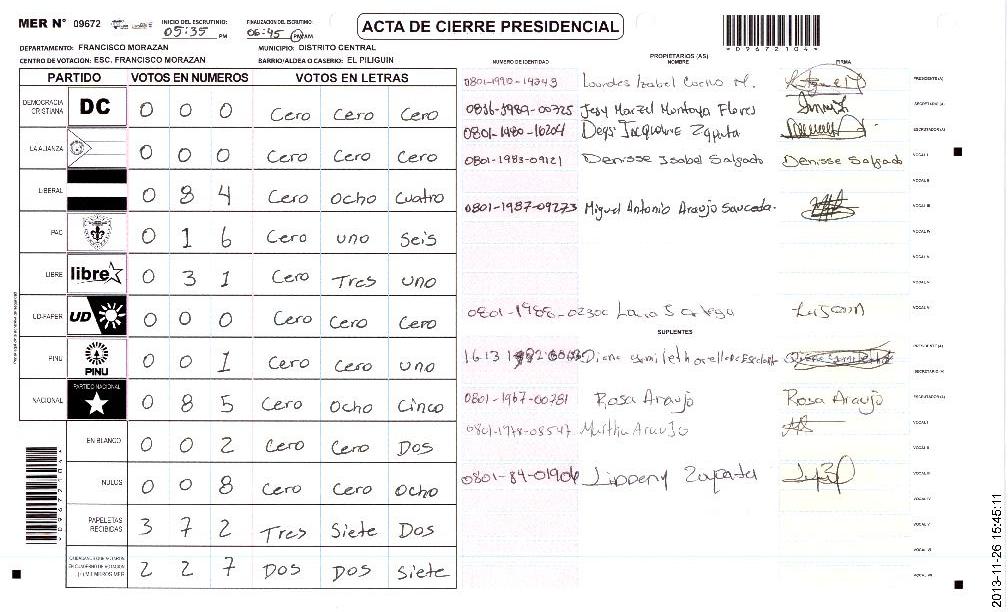 MER N° 09672
INICIO DEL ESCRUTINIO: 05:35 PM
FINALIZACION DEL ESCRUTINIO: 06:45 PM AM
ACTA DE CIERRE PRESIDENCIAL
DEPARTAMENTO: FRANCISCO MORAZAN
MUNICIPIO: DISTRITO CENTRAL
CENTRO DE VOTACION: ESC. FRANCISCO MORAZAN
BARRIO/ALDEA O CASERIO: EL PILIGUIN
* 0 9 6 7 2 1 0 4 *
PARTIDO VOTOS EN NUMEROS VOTOS EN LETRAS
DEMOCRACIA CRISTIANA DC 0 0 0 Cero Cero Cero
LA ALIANZA 0 0 0 Cero Cero Cero
LIBERAL 0 8 4 Cero Ocho Cuatro
PAC 0 1 6 Cero uno Seis
LIBRE libre 0 3 1 Cero Tres uno
UD-FAPER UD 0 0 0 Cero Cero Cero
PINU PINU 0 0 1 Cero Cero uno
NACIONAL PARTIDO NACIONAL 0 8 5 Cero Ocho Cinco
EN BLANCO 0 0 2 Cero Cero Dos
NULOS 0 0 8 Cero Cero Ocho
PAPELETAS RECIBIDAS 3 7 2 Tres Siete Dos
2 2 7 DOS DOS Siete
PROPIETARIOS (AS)
NUMERO DE IDENTIDAD NOMBRE FIRMA
0801-1990-14343 Lourdes Izabel M. PRESIDENTE(A)
Jesy Marzel Montoya Flores SECRETARIO(A)
0801-1980-16204 Deysi Jacqueline Zapata ESCRUTADOR(A)
0801-1983-09121 Denisse Isabel Salgado Denisse Salgado VOCAL I
VOCAL II
0801-1987-09273 Miguel Antonio Araujo Sauceda. VOCAL III
VOCAL IV
VOCAL V
0801-1988-
SUPLENTES
Diana PRESIDENTE(A)
SECRETARIO(A)
0801-1967-00781 Rosa Araujo Rosa Araujo ESCRUTADOR(A)
0801-1978-08547 Martha Araujo VOCAL I
VOCAL II
0801-84-01906 Zapata VOCAL III
VOCAL IV
VOCAL V
VOCAL VI
VOCAL VII
2013-11-26 15:45:11